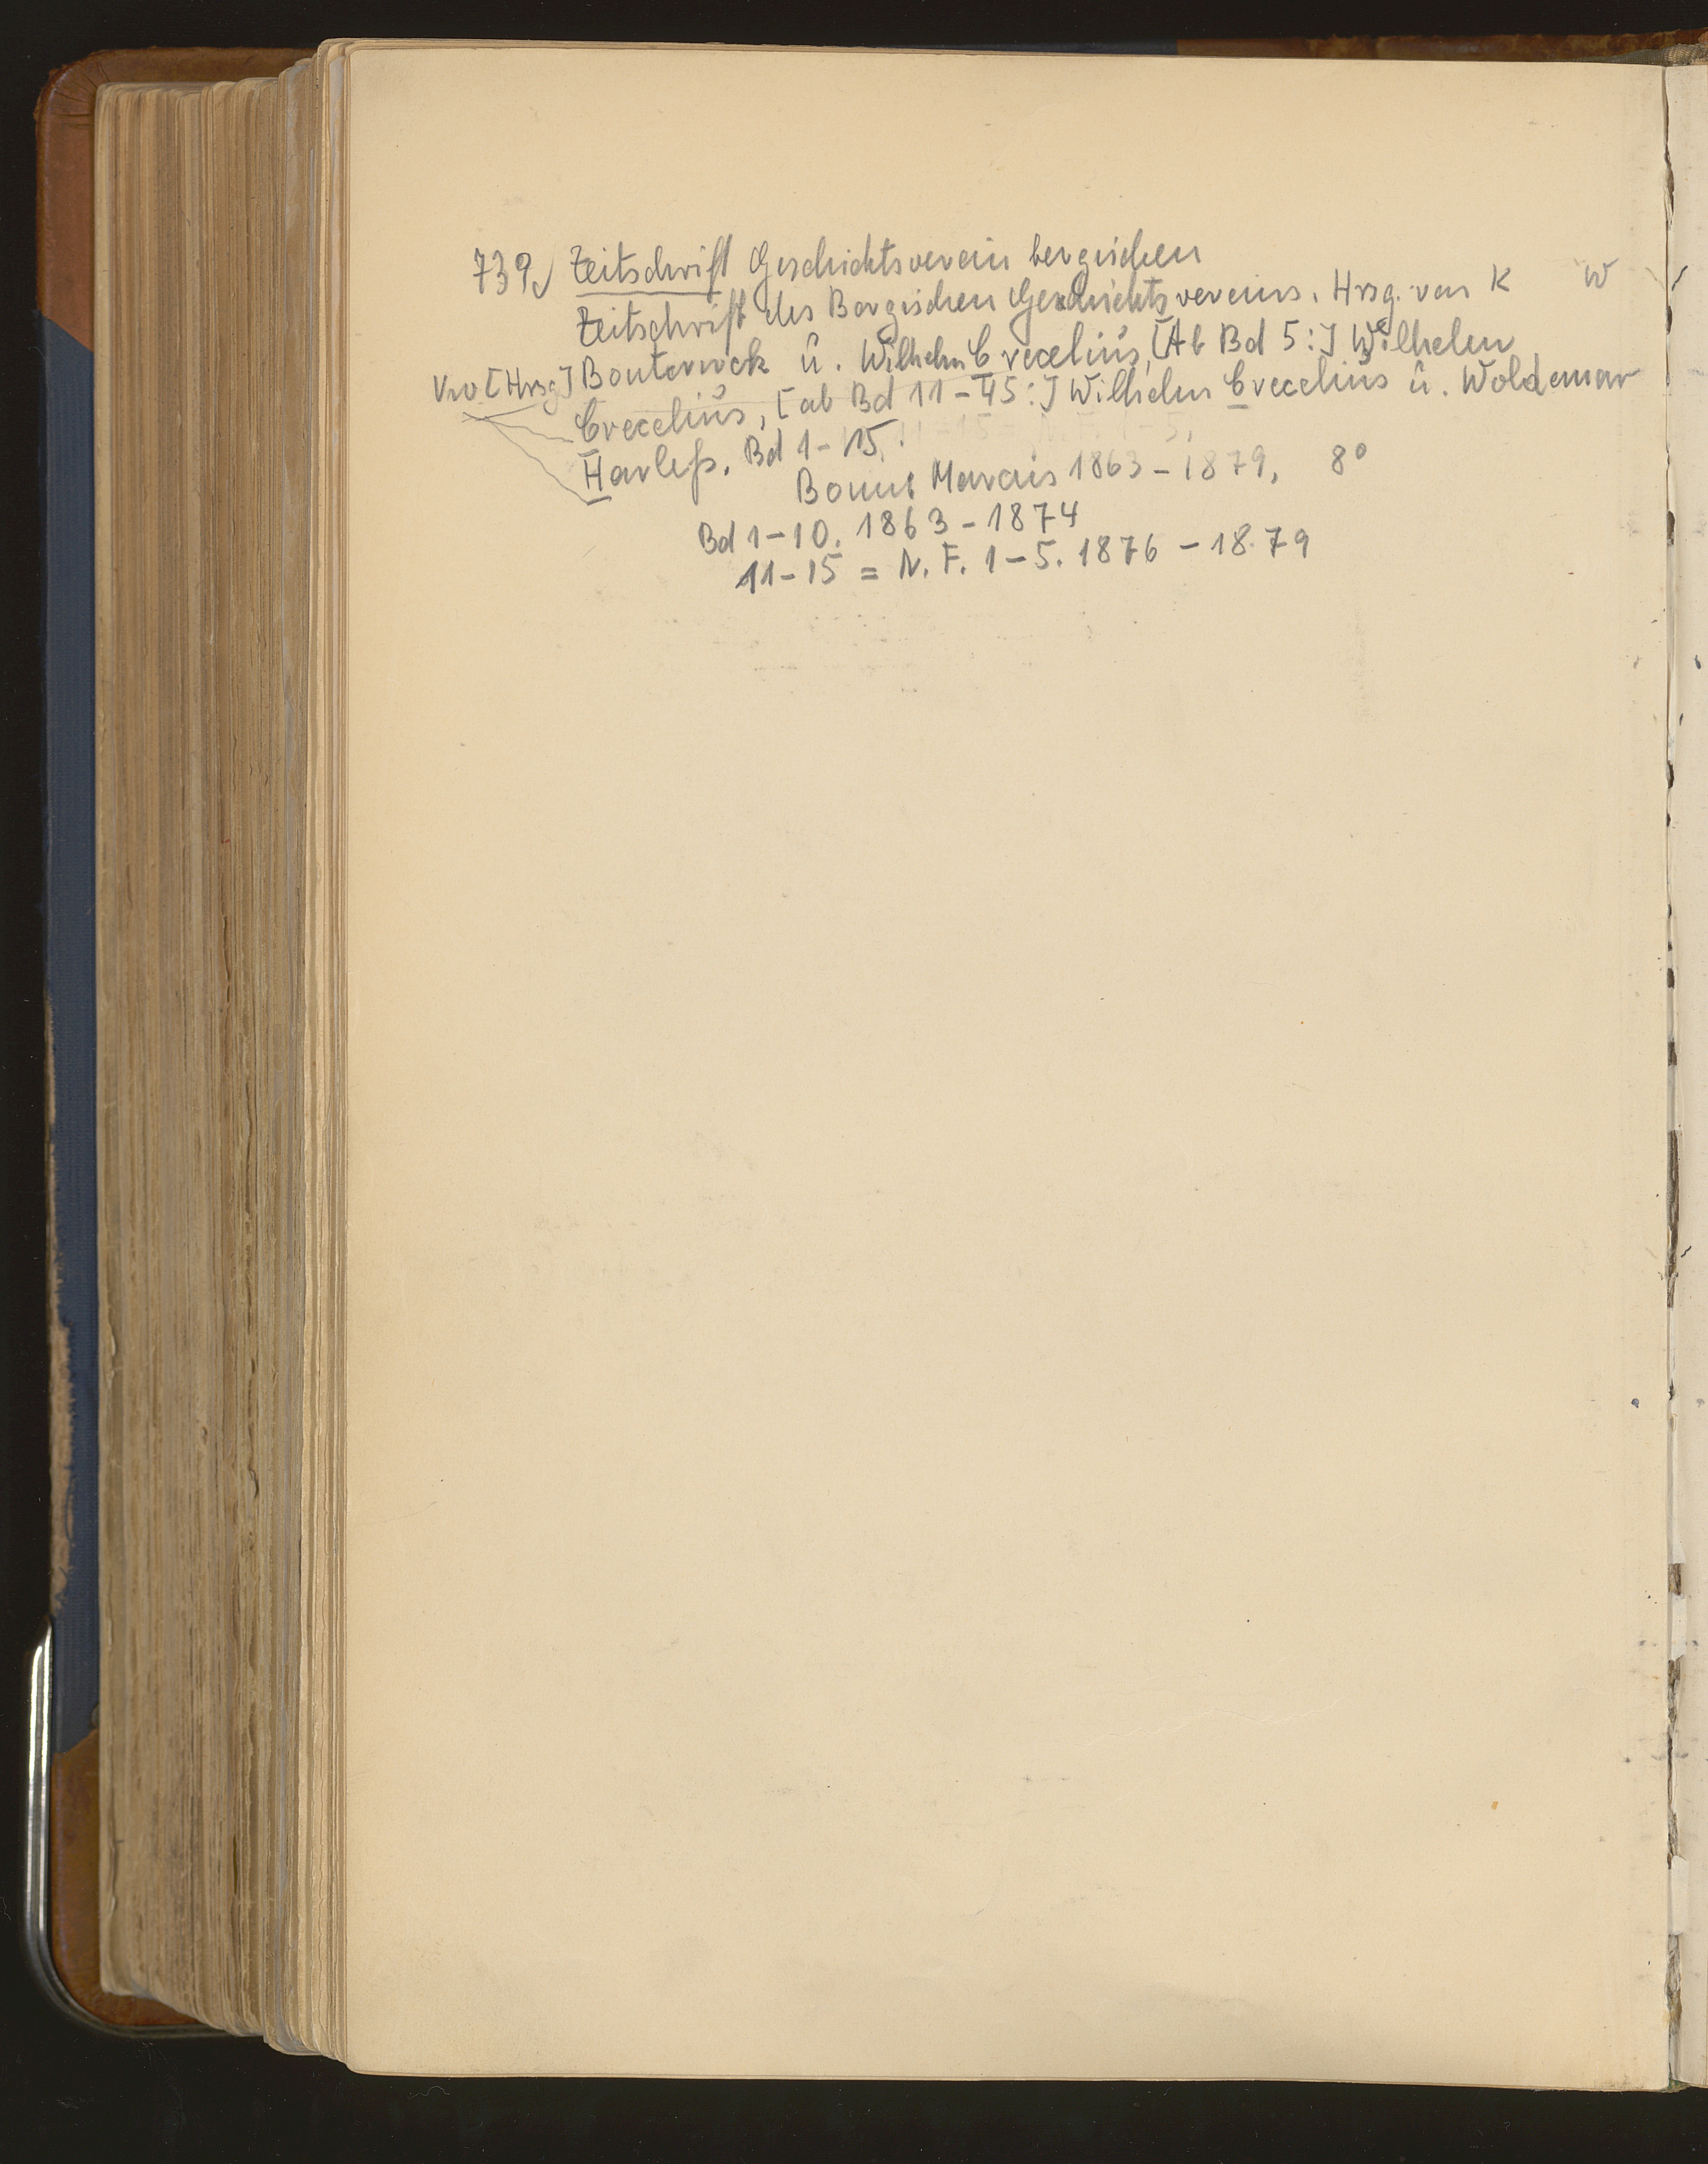 739) Zeitschrift Geschichtsverein bergischen
Zeitschrift des Bergischen Geschichtsvereins. Hrsg. von K W
Vw [Hrsg] Bouterwek u. Wilhelm Crecelius, [Ab Bd 5:] Wilhelm
Crecelius, [ab Bd 11-15:] Wilhelm Crecelius u. Woldemar
Harleß. Bd 1-15.
Bonn: Marcus 1863-1879. 8°
Bd 1-10. 1863-1874
11-15 = N. F. 1-5. 1876-1879